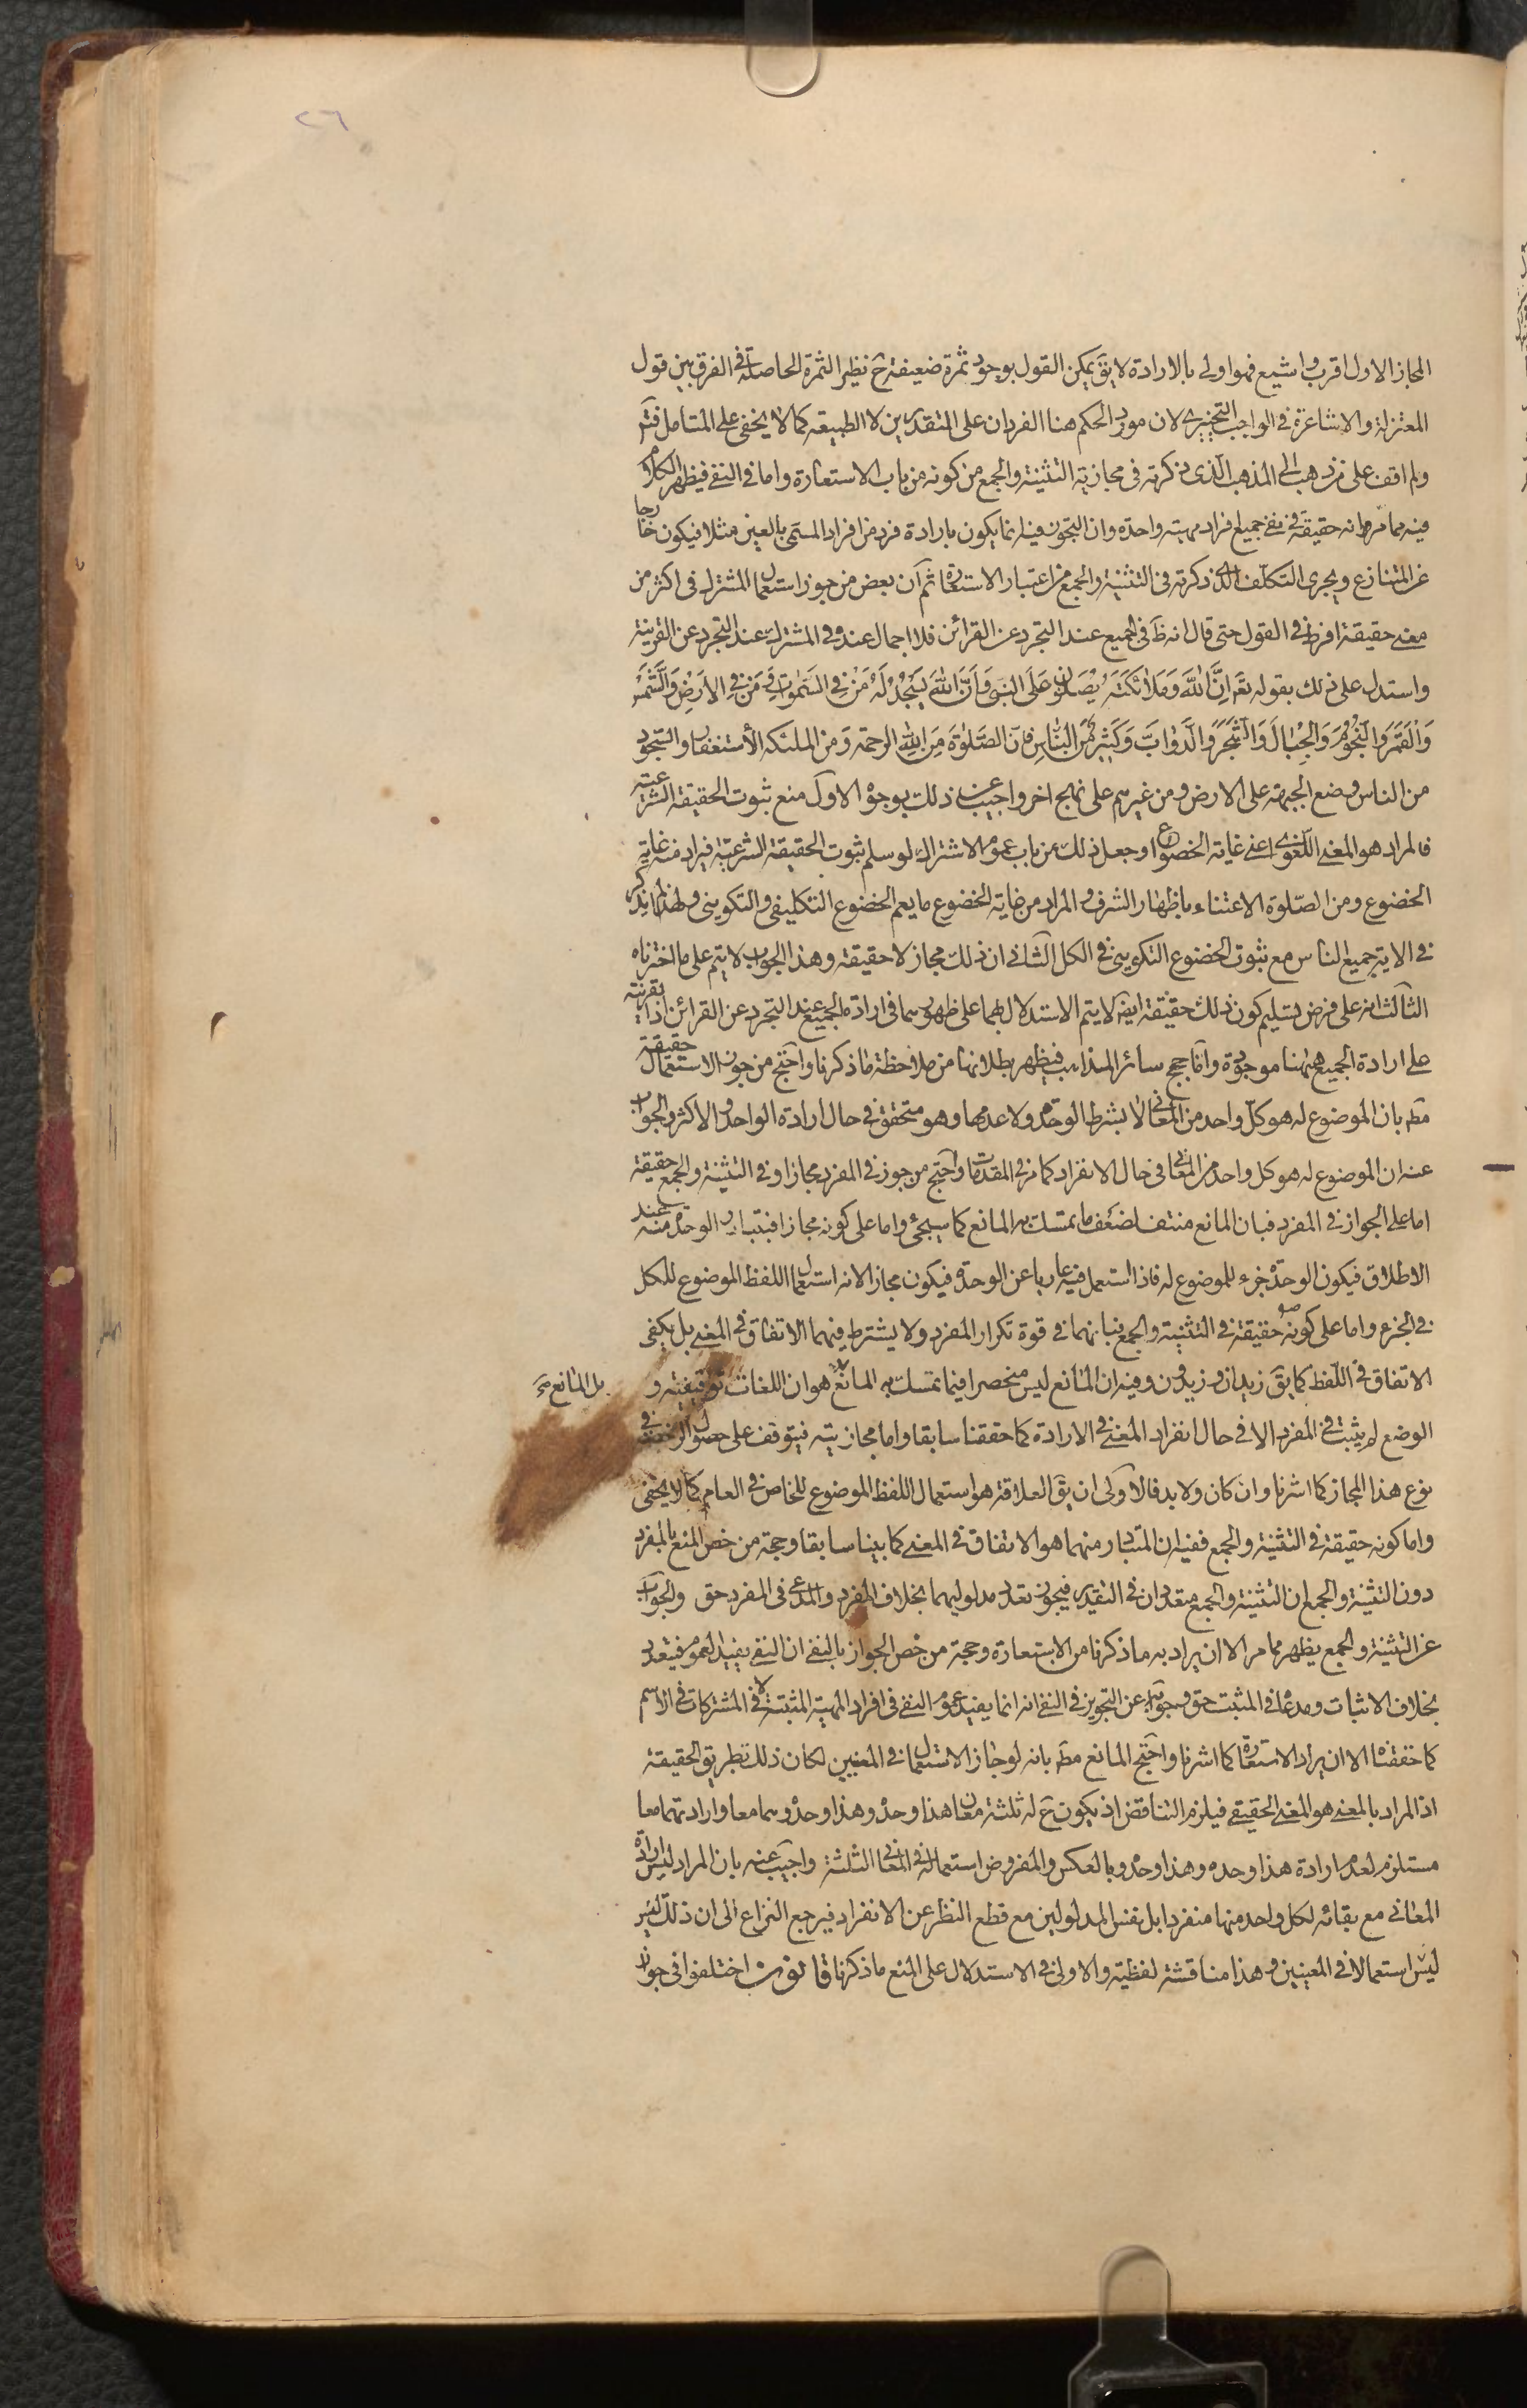 ٢٦
المجاز الاول اقرب واشيع فهو اولى بالارادة لا يق يمكن القول بوجود ثمرة ضعيفة ح نظير الثمرة الحاصلة في الفرق بين قول
المعتزلة والاشاعرة في الواجب التخييرى لان مورد الحكم هنا الفردان على التقديرين لا الطبيعة كما لا يخفى على المتامل فتم
ولم اقف على من ذهب الى المذهب الذى ذكرته في مجازية التثنية والجمع من كونه من باب الاستعارة واما في النفى فيظهر الكلام
فيه مما مر وانه حقيقة في نفى جميع افراد مهية واحدة وان التجوز فيه انما يكون بارادة فرد من افراد المسمى بالعين مثلا فيكون خارجا
عن المتنازع ويجرى التكلف الذى ذكرته في التثنية والجمع من اعتبار الاستعارة ثم ان بعض من جوز استعمال المشترك في اكثر من
معنى حقيقة افرط في القول حتى قال انه ظ في الجميع عند التجرد عن القرائن فلا اجمال عنده في المشترك عند التجرد عن القرينة
واستدل على ذلك بقوله تع اِنَّ اللّٰهَ وَمَلَائِكَتَهُ يُصَلُّونَ عَلَى النَّبِيّ وَاَنَّ اللّٰهَ يَسْجُدُ لَهُ مَنْ فِي السَّمٰوَاتِ وَ مَنْ فِي الْاَرْضِ وَالشَّمْسُ
وَالْقَمَرُ وَالنُّجُومُ وَالْجِبَالُ وَالشَّجَرُ وَالدَّوَابُّ وَكَثِيرٌ مِنَ النَّاسِ فان الصَّلٰوةَ مِنَ اللّٰهِ الرحمة وَمن الملئكة الأستغفار والسّجود
من الناس وضع الجبهة على الارض ومن غيرهم على نهج اخر واجيب عن ذلك بوجوه الاول منع ثبوت الحقيقة الشرعية
فالمراد هو المعنى اللّغوى اعنى غاية الخضوع او جعل ذلك من باب عموم الاشتراك لو سلم ثبوت الحقيقة الشرعيّة فيراد منه غاية
الخضوع ومن الصّلوة الاعتناء باظهار الشرف والمراد من غاية الخضوع ما يعم الخضوع التكليفى والتكوينى ولهذا لم يذكر
في الاية جميع الناس مع ثبوت الخضوع التكوينى في الكل الثانى ان ذلك مجاز لا حقيقة وهذا الجواب لا يتم على ما اخترناه
الثالث انه على فرض تسليم كون ذلك حقيقة ايضا لا يتم الاستدلال بهما على ظهورهما في ارادة الجميع عند التجرد عن القرائن اذ القرينة
على ارادة الجميع هيهنا موجودة وامّا حجج سائر المذاهب فيظهر بطلانها من ملاحظة ما ذكرنا واحتج من جوز الاستعمال حقيقة
مطه بان الموضوع له هو كل واحد من المعانى لا بشرط الوحدة ولا عدمها وهو متحقق في حال ارادة الواحد والاكثر والجواب
عنه ان الموضوع له هو كل واحد من المعانى في حال الانفراد كما مر في المقدمات واحتج من جوز في المفرد مجازا وفي التثنية والجمع حقيقة
اما على الجواز في المفرد فبان المانع منتف لضعف ما تمسك به المانع كما سيجئ واما على كونه مجازا فبتبادر الوحدة منه عند
الاطلاق فيكون الوحدة جزء للموضوع له فاذا استعمل فيه عاريا عن الوحدة فيكون مجازا لانه استعمال اللفظ الموضوع للكل
في الجزء واما على كونه حقيقة في التثنية والجمع فبانهما في قوة تكرار المفرد ولا يشترط فيهما الاتفاق في المعنى بل يكفى
الاتفاق في اللّفظ كما يق زيدان وزيدون وفيه ان المانع ليس منحصرا فيما تمسك به المانع هو ان اللغات توقيفية و
بل المانع صح
الوضع لم يثبت في المفرد الا في حال انفراد المعنى في الارادة كما حققنا سابقا واما مجازيته فيتوقف على حصول الرخصة في
نوع هذا المجاز كما اشرنا وان كان ولا بد فالاولى ان يق العلاقة هو استعمال اللفظ الموضوع للخاص في العام كما لا يخفى
واما كونه حقيقة في التثنية والجمع ففيه ان المتبادر منهما هو الاتفاق في المعنى كما بينا سابقا وحجة من خص المنع بالمفرد
دون التثنية والجمع ان التثنية والجمع متعددان في التقدير فيجوز تعدد مدلوليهما بخلاف المفرد والمدعى في المفرد حق والجواب
عن التثنية والجمع يظهر مما مر الا ان يراد به ما ذكرنا من الاستعارة وحجة من خص الجواز بالنفى ان النفى يفيد العموم فيتعدد
بخلاف الاثبات ومدعاه في المثبت حق وجوابه عن التجويز في النفى انه انما يفيد عموم النفى في افراد المهية المثبتة لا في المشتركات في الاسم
كما حققناه الا ان يراد الاستعارة كما اشرنا واحتج المانع مطه بانه لو جاز الاستعمال في المعنيين لكان ذلك بطريق الحقيقة
اذ المراد بالمعنى هو المعنى الحقيقى فيلزم التناقض اذ يكون ح له ثلثة معان هذا وحده وهذا وحده وهما معا وارادتهما معا
مستلزم لعدم ارادة هذا وحده وهذا وحده وبالعكس والمفروض استعماله في المعانى الثلثة واجيب عنه بان المراد ليس ارادة
المعانى مع بقائه لكل واحد منها منفردا بل نفس المدلولين مع قطع النظر عن الانفراد فيرجع النزاع الى ان ذلك ليس
ليس استعمالا في المعنيين وهذا مناقشة لفظية والاولى في الاستدلال على المنع ما ذكرنا قانون اختلفوا في جواز